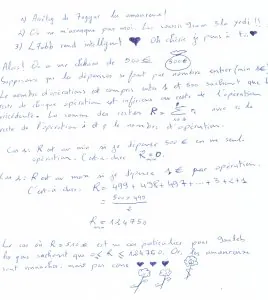 1)
2) On ne m'arnaque pas moi. !!
3) L'Tebb rend intelligent ♥ Oh chérie je pense à toi ♥
Alors! On a une dépense de 500€ 500€
Supposons que les dépenses se font par nombre entier (min 1€)
Le nombre d'opérations est compris entre 1 et 500 sachant que le
reste de chaque opération est inférieur au reste de l'opération
précédente. La somme des restes R = Σ rᵢ avec rᵢ le
reste de l'opération i et p le nombre d'opération.
Cas 1: R est au min si je dépense 500€ en une seule
opération. C'est-à-dire R = 0.
Cas 2: R est au max si je dépense 1€ par opération.
C'est-à-dire: R = 499 + 498 + 497 + ... + 3 + 2 + 1
= 500 × 499 / 2
R = 124750
Le cas où R = est un cas particulier pour
les gens sachant que 0 ≤ R ≤ 124750. Or, les amoureux
sont mais pas cons ♥ ♥ ♥ ♥